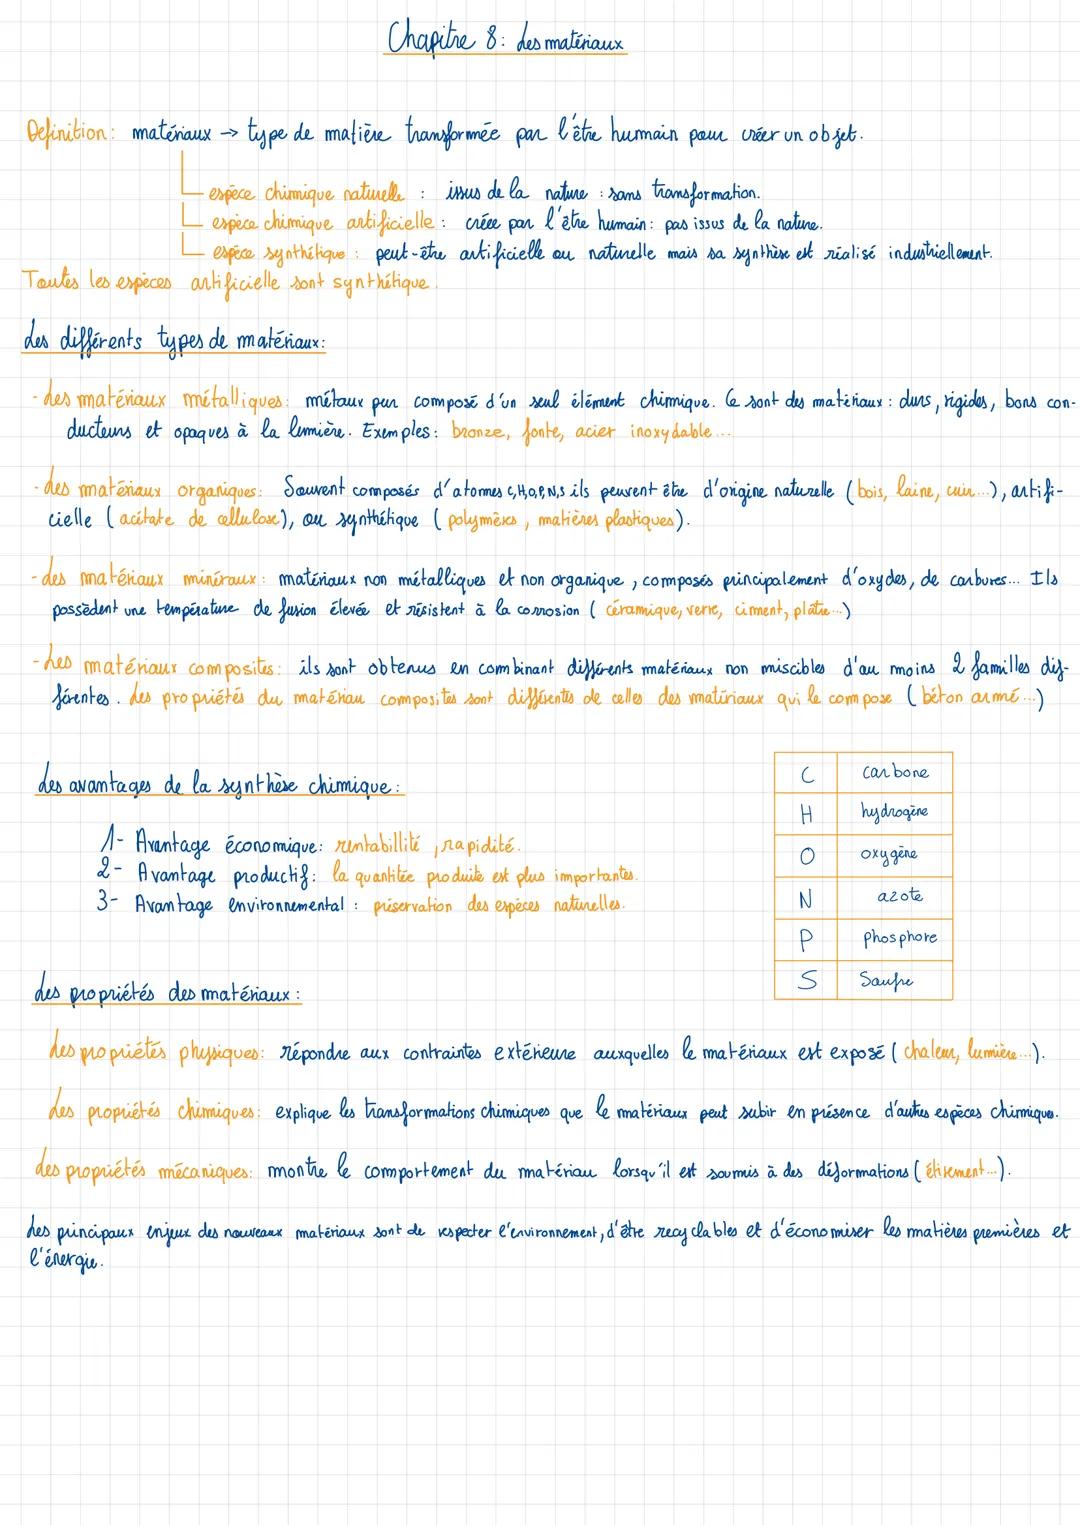 Chapitre 8: Les matériaux
Definition: matériaux → type de matière transformée par l'être humain pour créer un objet.
espèce chimique naturelle : issus de la nature : sans transformation.
espèce chimique artificielle : créée par l'être humain: pas issus de la nature.
espèce synthétique : peut-être artificielle ou naturelle mais sa synthèse est réalisé industriellement.
Toutes les espèces artificielle sont synthétique.
Les différents types de matériaux:
- Les matériaux métalliques: métaux pur composé d'un seul élément chimique. Ce sont des matériaux : durs, rigides, bons con-
ducteurs et opaques à la lumière. Exemples: bronze, fonte, acier inoxydable...
- Les matériaux organiques: Souvent composés d'atomes C,H,O,P,N,S ils peuvent être d'origine naturelle (bois, laine, cuir...), artifi-
cielle (acétate de cellulose), ou synthétique (polymères, matières plastiques).
- Les matériaux minéraux: matériaux non métalliques et non organique, composés principalement d'oxydes, de carbures... Ils
possèdent une température de fusion élevée et résistent à la corrosion (céramique, verre, ciment, plâtre...)
- Les matériaux composites: ils sont obtenus en combinant différents matériaux non miscibles d'au moins 2 familles dif-
férentes. Les propriétés du matériau composites sont différentes de celles des matériaux qui le compose (béton armé...)
Les avantages de la synthèse chimique :
1- Avantage économique: rentabillité, rapidité.
2- Avantage productif: la quantitée produite est plus importantes.
3- Avantage environnemental : préservation des espèces naturelles.
C carbone
H hydrogène
O oxygène
N azote
P phosphore
S Soufre
Les propriétés des matériaux :
Les propriétés physiques: répondre aux contraintes extérieure auxquelles le matériaux est exposé (chaleur, lumière...).
Les propriétés chimiques: explique les transformations chimiques que le matériaux peut subir en présence d'autres espèces chimiques.
Les propriétés mécaniques: montre le comportement du matériau lorsqu'il est soumis à des déformations (étirement...).
Les principaux enjeux des nouveaux matériaux sont de respecter l'environnement, d'être recyclables et d'économiser les matières premières et
l'énergie.